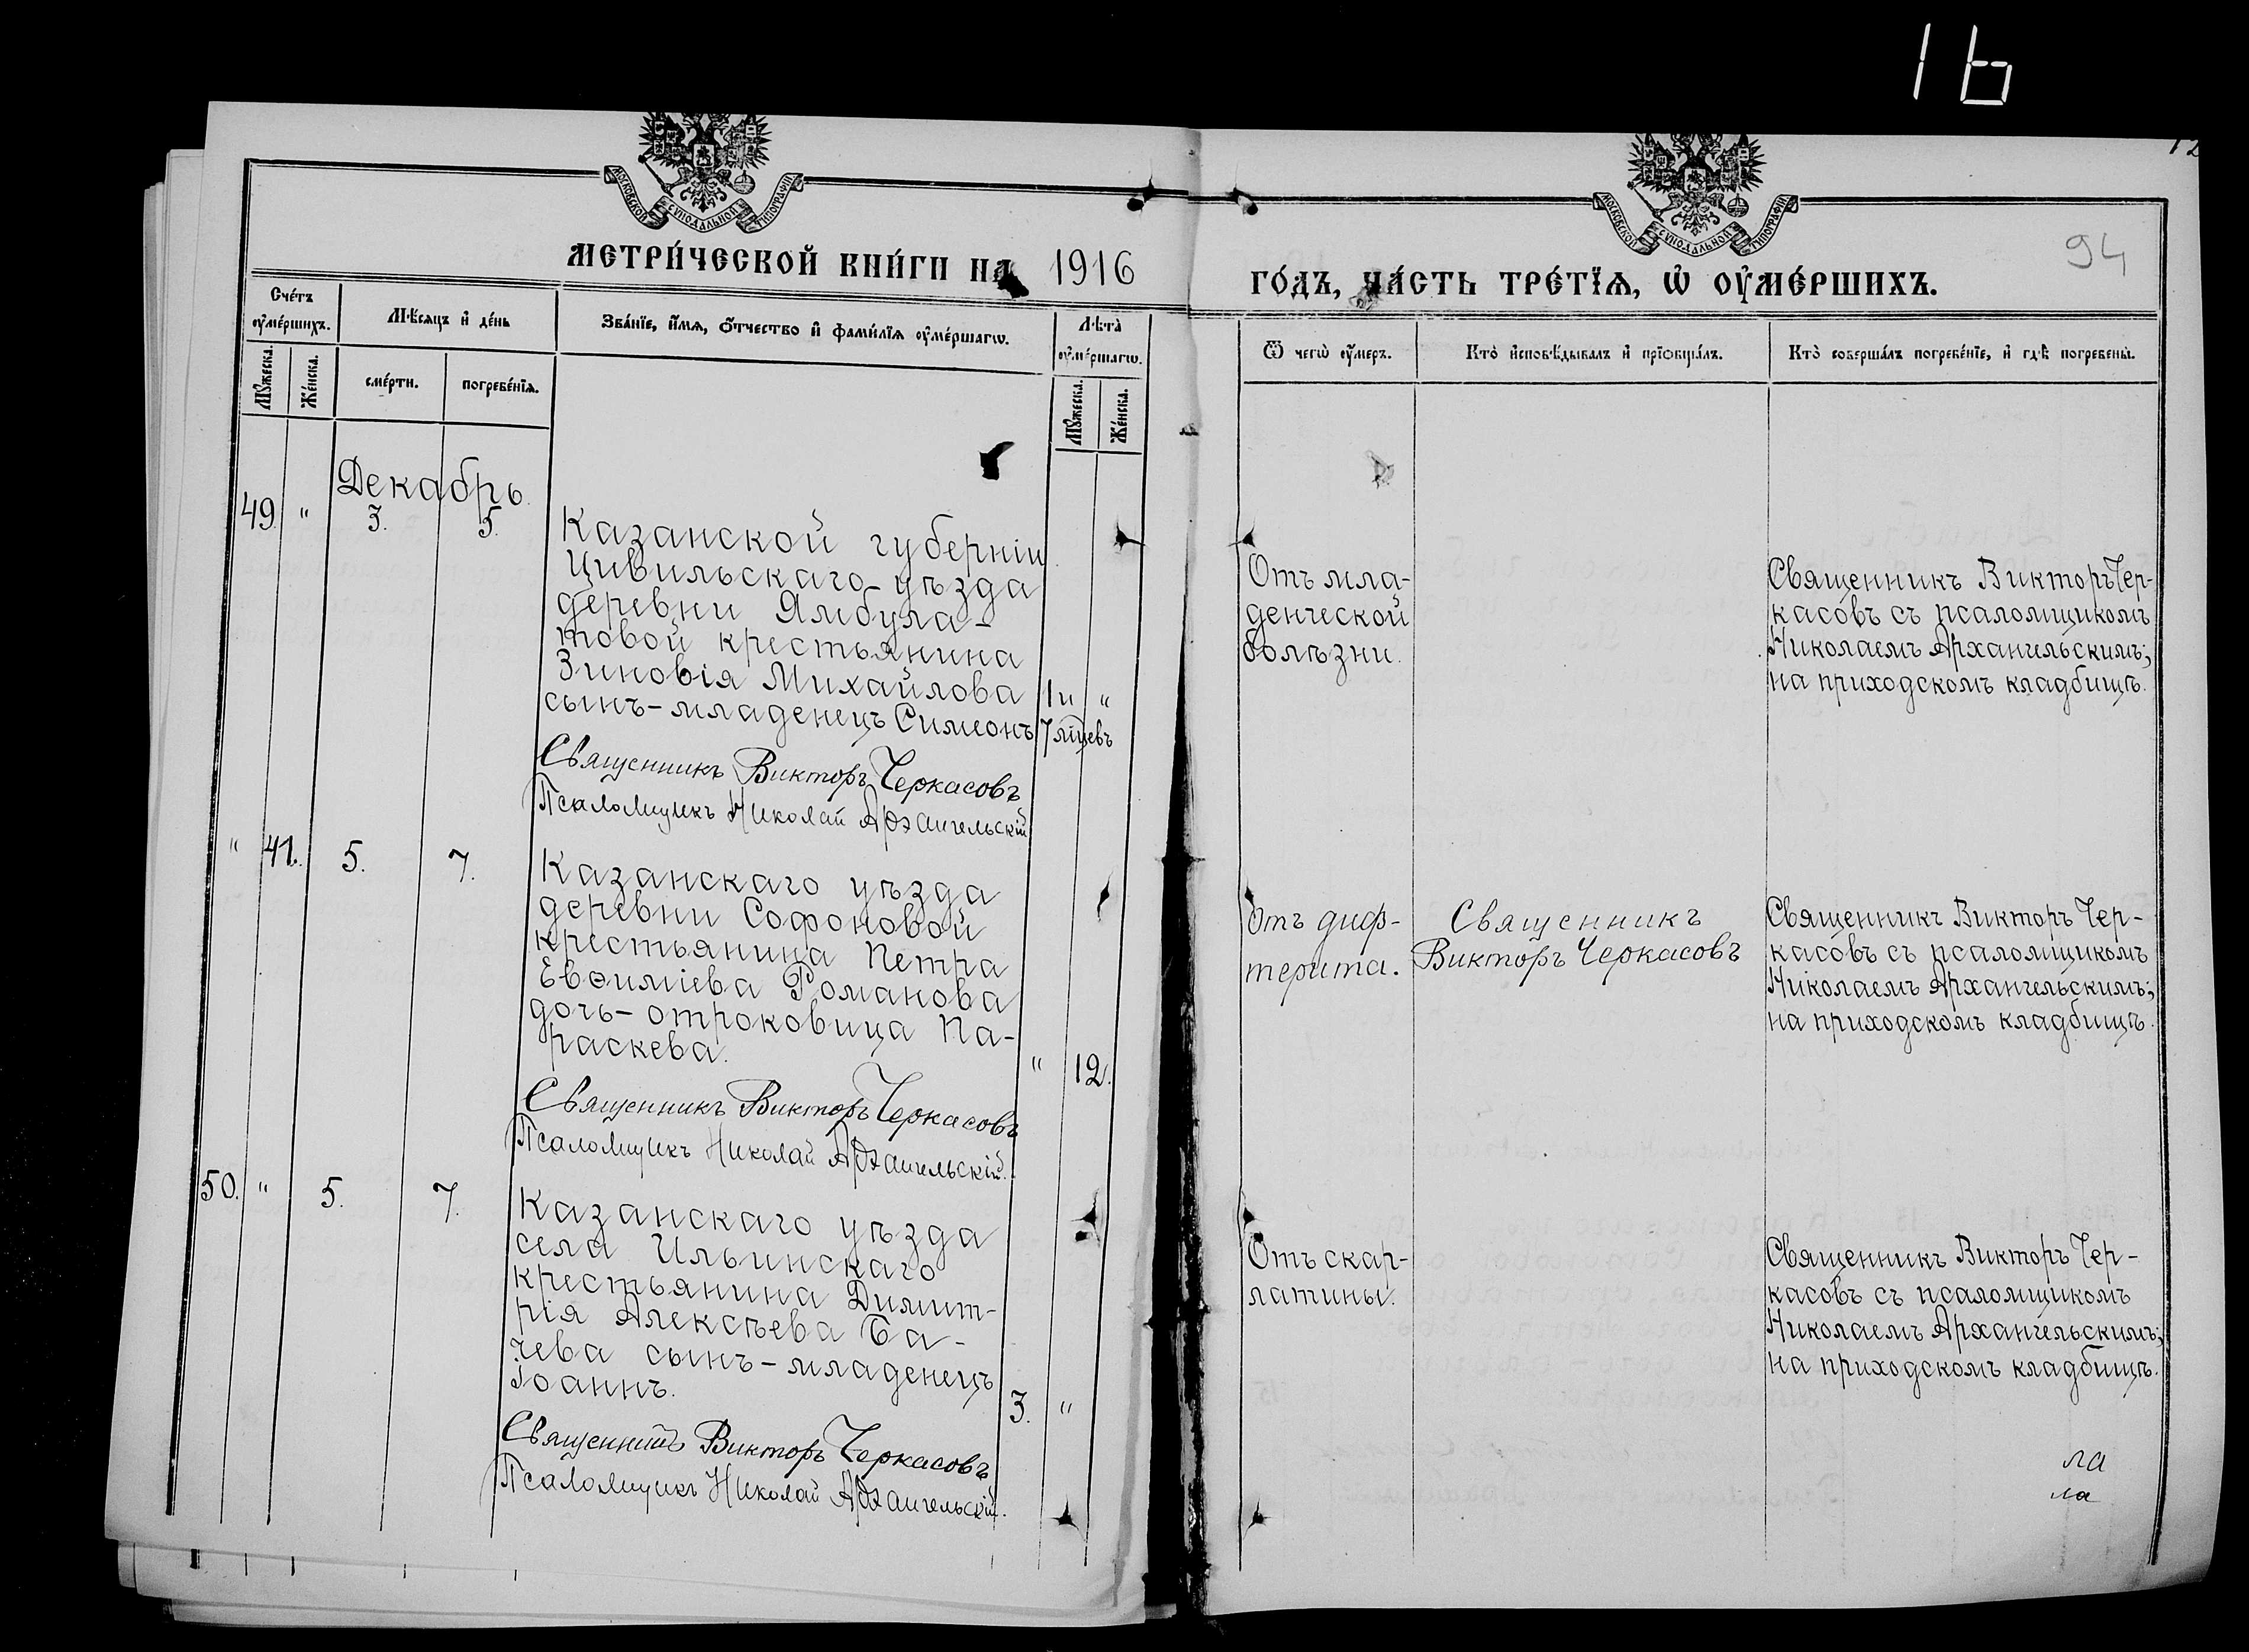 16
12
МОСКОВСКОЙ СѴНОДАЛЬНОЙ ТИПОГРАФІИ
МОСКОВСКОЙ СѴНОДАЛЬНОЙ ТИПОГРАФІИ
94
МЕТРИ́ЧЕСКОЙ КНИ́ГИ НА 1916
ГО́ДЪ, ЧА́СТЬ ТРЕ́ТЇѦ, Ѡ҆ ОУ҆МЕ́РШИХЪ.
Сче́тъ оу҆ме́ршихъ.
Мꙋ́жеска.
Же́нска.
Мѣ́сѧцъ и҆ де́нь
сме́рти.
погребе́нїѧ.
Зва́нїе, и҆́мѧ, ѻ҆́тчество и҆ фами́лїѧ оу҆ме́ршагѡ.
Лѣ́та оу҆ме́ршагѡ.
Мꙋ́жеска.
Же́нска.
Ѿ чегѡ̀ оу҆́меръ.
Кто̀ и҆сповѣ́дывалъ и҆ прїѻбща́лъ.
Кто̀ соверша́лъ погребе́нїе, и҆ гдѣ̀ погребены̀.
Декабрь.
49 " 3. 5.
Казанской губерніи
Цивильскаго уѣзда
деревни Ямбула-
товой крестьянина
Зиновія Михайлова
сынъ-младенецъ Симеонъ
1 и "
7 мцевъ
Священникъ Викторъ Черкасовъ
Псаломщикъ Николай Архангельскій
Отъ мла-
денческой
болѣзни.
Священникъ Викторъ Чер-
касовъ съ псаломщикомъ
Николаемъ Архангельскимъ;
на приходскомъ кладбищѣ.
" 41. 5. 7.
Казанскаго уѣзда
деревни Софоновой
крестьянина Петра
Евѳиміева Романова
дочь-отроковица Па-
раскева.
" 12.
Священникъ Викторъ Черкасовъ
Псаломщикъ Николай Архангельскій.
Отъ диф-
терита.
Священникъ
Викторъ Черкасовъ
Священникъ Викторъ Чер-
касовъ съ псаломщикомъ
Николаемъ Архангельскимъ;
на приходскомъ кладбищѣ.
50. " 5. 7.
Казанскаго уѣзда
села Ильинскаго
крестьянина Димит-
рія Алексѣева Ба-
чева сынъ-младенецъ
Іоаннъ.
3. "
Священникъ Викторъ Черкасовъ
Псаломщикъ Николай Архангельскій.
Отъ скар-
латины.
Священникъ Викторъ Чер-
касовъ съ псаломщикомъ
Николаемъ Архангельскимъ;
на приходскомъ кладбищѣ.
ла
ла